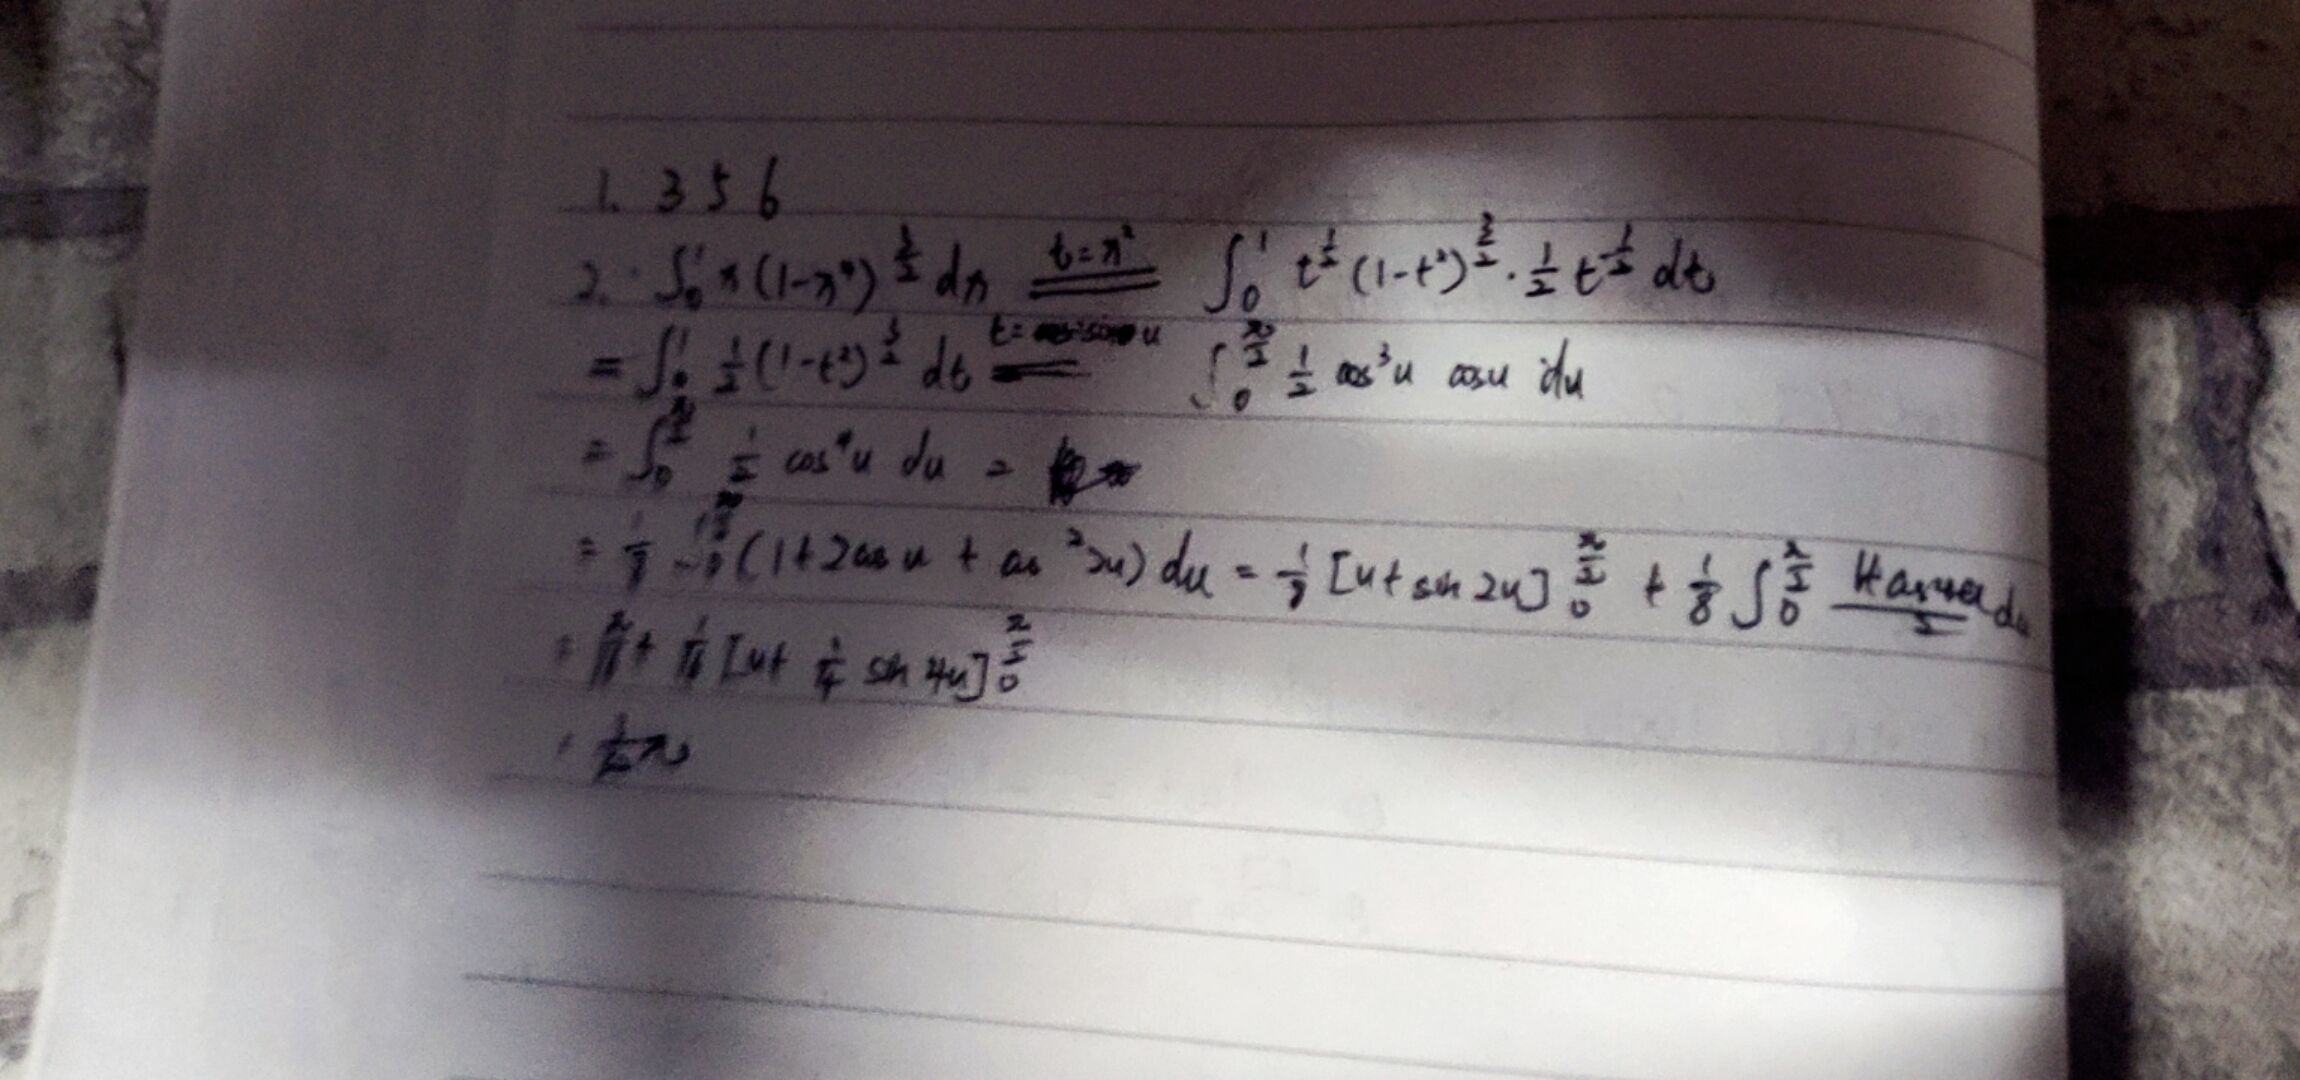 1. 3 5 6
2. ∫₀¹ x(1-x⁴)^{3/2} dx \xlongequal{t=x²} ∫₀¹ t^{1/2} (1-t²)^{3/2} · 1/2 t^{-1/2} dt
= ∫₀¹ 1/2 (1-t²)^{3/2} dt \xlongequal{t=sin u} ∫₀^{π/2} 1/2 cos³u cosu du
= ∫₀^{π/2} 1/2 cos⁴u du =
= 1/8 ∫₀^{π/2} (1+2cos u + cos²2u) du = 1/8 [u+sin 2u]₀^{π/2} + 1/8 ∫₀^{π/2} (1+cos4u)/2 du
= π/16 + 1/16 [u+ 1/4 sin 4u]₀^{π/2}
=